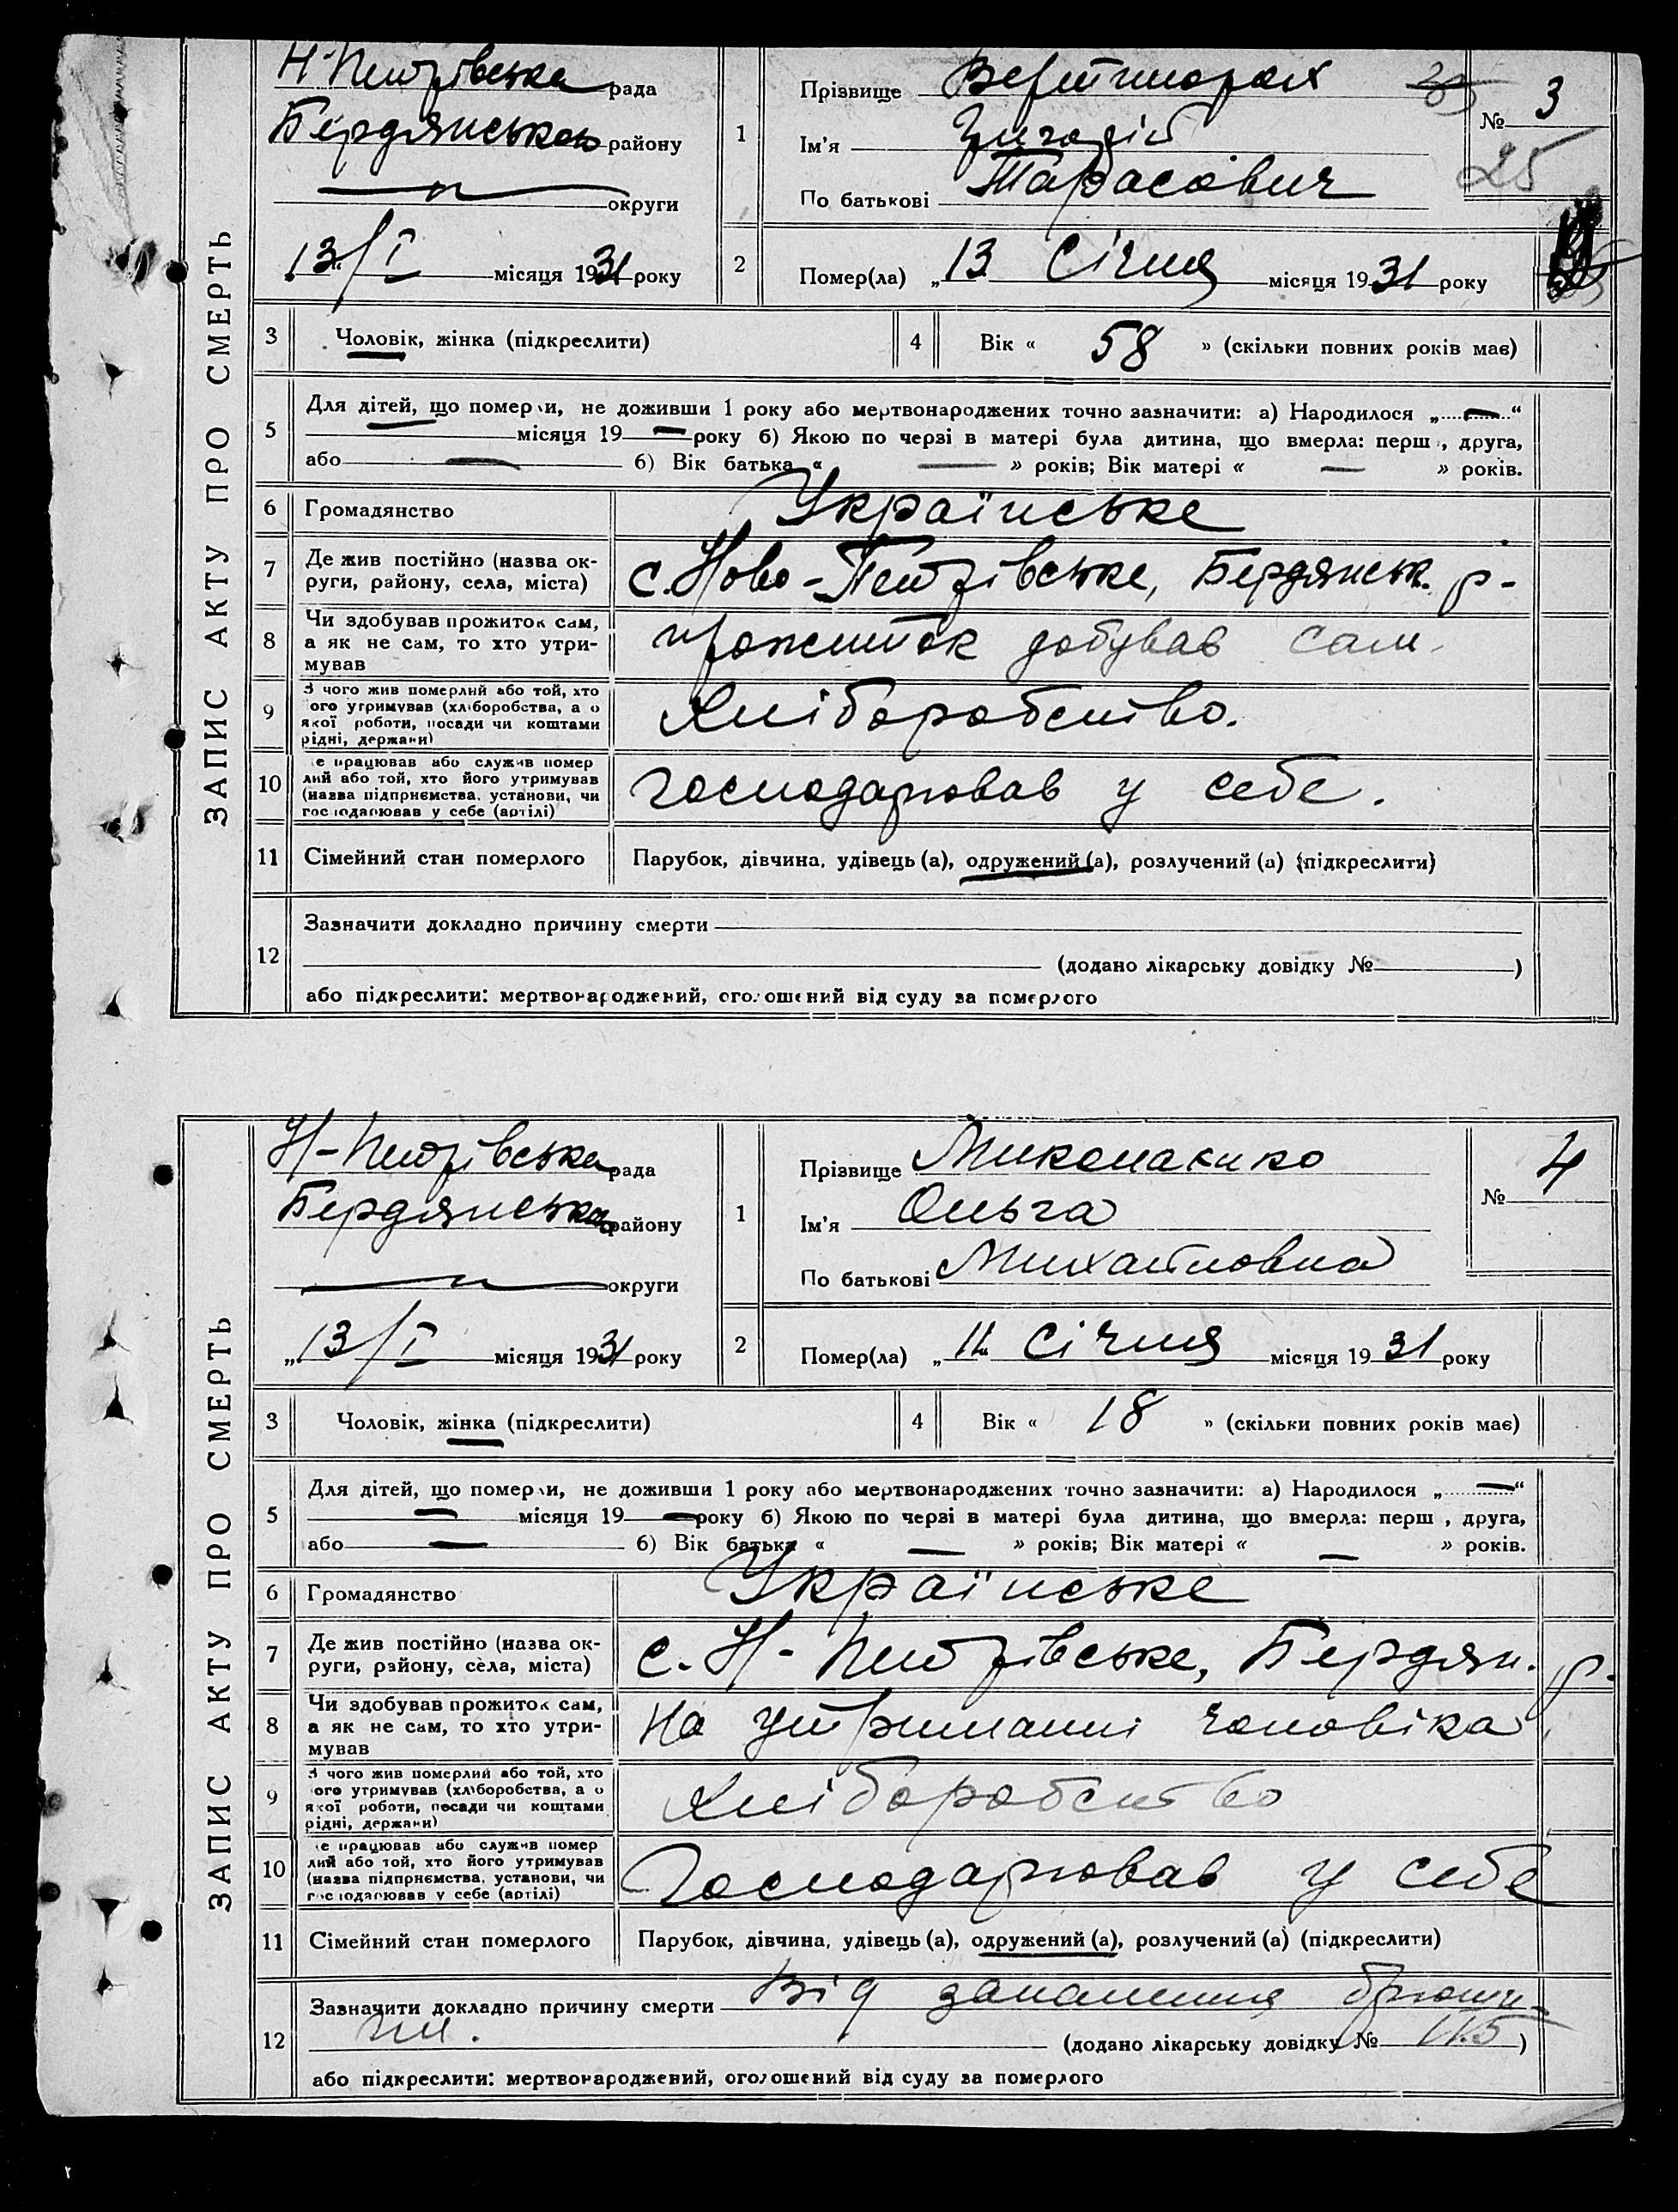 ЗАПИС АКТУ ПРО СМЕРТЬ
Н-Петрівська рада
Бердянського району
округи
„13/I місяця 1931 року
1
Прізвище
Ім'я Григорій
По батькові Тарасович
№ 3
25
2
Помер(ла) „13 Січня місяця 1931 року
3 Чоловік, жінка (підкреслити)
4 Вік « 58 » (скільки повних років має)
5
Для дітей, що померли, не доживши 1 року або мертвонароджених точно зазначити: а) Народилося „ — “
місяця 19 — року б) Якою по черзі в матері була дитина, що вмерла: перш , друга,
або — 6) Вік батька « — » років; Вік матері « — » років.
6 Громадянство Українське
7 Де жив постійно (назва ок-
руги, району, села, міста) с. Ново-Петрівське, Бердянськ. р-
8 Чи здобував прожиток сам,
а як не сам, то хто утри-
мував прожиток добував сам.
9 З чого жив померлий або той, хто
ого утримував (хліборобства, а о
якої роботи, посади чи коштами
рідні, держави) Хліборобство.
10 е працював або служив помер
лий або той, хто його утримував
(назва підприємства, установи, чи
господарював у себе (артілі) Господарював у себе.
11 Сімейний стан померлого Парубок, дівчина, удівець (а), одружений (а), розлучений (а) (підкреслити)
12
Зазначити докладно причину смерти
(додано лікарську довідку № )
або підкреслити: мертвонароджений, оголошений від суду за померлого
ЗАПИС АКТУ ПРО СМЕРТЬ
Н-Петрівська рада
Бердянського району
округи
„13/I місяця 1931 року
1
Прізвище Миколаєнко
Ім'я Ольга
По батькові Михайловна
№ 4
2
Помер(ла) „11 Січня місяця 1931 року
3 Чоловік, жінка (підкреслити)
4 Вік « 18 » (скільки повних років має)
5
Для дітей, що померли, не доживши 1 року або мертвонароджених точно зазначити: а) Народилося „ — “
— місяця 19 — року б) Якою по черзі в матері була дитина, що вмерла: перш , друга,
або — 6) Вік батька « — » років; Вік матері « — » років.
6 Громадянство Українське
7 Де жив постійно (назва ок-
руги, району, села, міста) с. Н-Петрівське, Бердян. р.
8 Чи здобував прожиток сам,
а як не сам, то хто утри-
мував На утриманні чоловіка
9 З чого жив померлий або той, хто
ого утримував (хліборобства, а о
якої роботи, посади чи коштами
рідні, держави) Хліборобство
10 е працював або служив помер
лий або той, хто його утримував
(назва підприємства, установи, чи
господарював у себе (артілі) Господарював у себе
11 Сімейний стан померлого Парубок, дівчина, удівець (а), одружений (а), розлучений (а) (підкреслити)
12
Зазначити докладно причину смерти Від запалення брюши-
ни. (додано лікарську довідку № 115)
або підкреслити: мертвонароджений, оголошений від суду за померлого